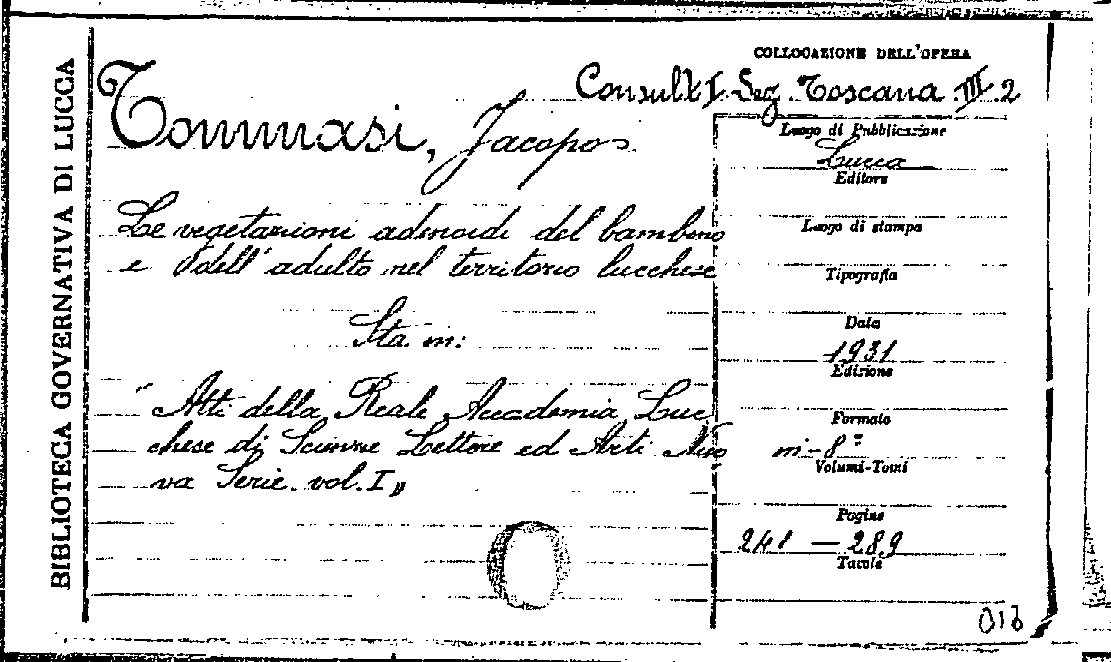 BIBLIOTECA GOVERNATIVA DI LUCCA
COLLOCAZIONE DELL'OPERA
Consult I. Seg. Toscana. III. 2
Tommasi, Jacopo
Le vegetazioni adenoidi del bambino
e dell'adulto nel territorio lucchese
Sta in:
" Atti della Reale Accademia Luc
chese di Scienze Lettere ed Arti Nuo
va Serie. vol. I "
Luogo di Pubblicazione
Lucca
Editore
Luogo di stampa
Tipografia
Data
1931
Edizione
Formato
in-8°
Volumi-Tomi
Pagine
241 — 289
Tavole